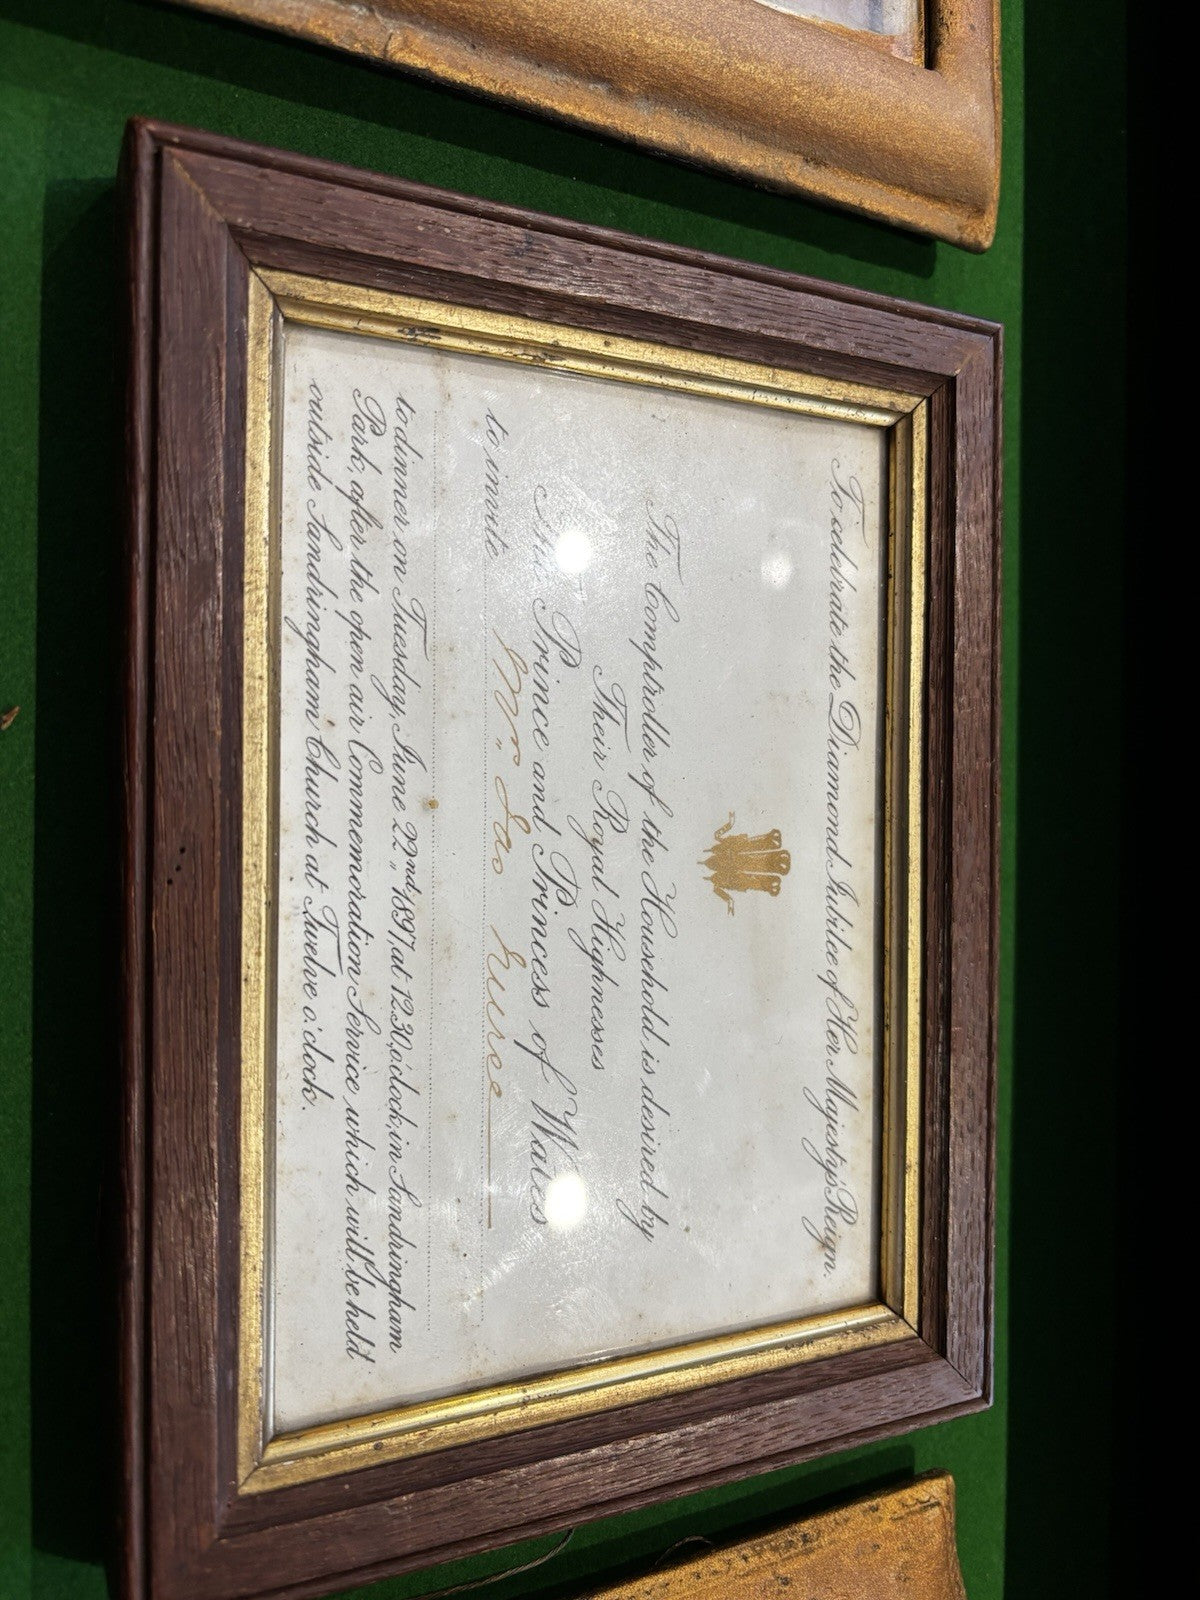 To celebrate the Diamond Jubilee of Her Majesty's Reign.
The Comptroller of the Household is desired by
Their Royal Highnesses
The Prince and Princess of Wales
to invite Mr.
to dinner on Tuesday, June 22nd, 1897, at 12.30, o'clock, in Sandringham
Park, after the open air Commemoration Service which will be held
outside Sandringham Church at Twelve o'clock.